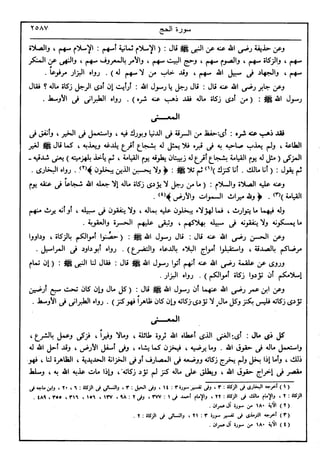 سورة الحج ٢٥٨٧
وعن حذيفة رضي الله عنه عن النبي ﷺ قال : ( الإسلام ثمانية أسهم : الإسلام سهم ، والصلاة
سهم ، والزكاة سهم ، والصوم سهم ، وحج البيت سهم ، والأمر بالمعروف سهم ، والنهى عن المنكر
سهم ، والجهاد فى سبيل الله سهم ، وقد خاب من لا سهم له ) . رواه البزار مرفوعاً .
وعن جابر رضي الله عنه قال : قال رجل يا رسول الله : أرأيت إن أدى الرجل زكاة ماله ؟ فقال
رسول الله ﷺ : ( من أدى زكاة ماله فقد ذهب عنه شره ) . رواه الطبرانى فى الأوسط .
المعــنى
فقد ذهب عنه شره : أى حفظ من السرقة فى الدنيا وبورك فيه ، واستعمل فى الخير ، وأنفق فى
الطاعة ، ولم يعذب صاحبه به فى قبره فلا يمثل له بشجاع أقرع يلدغه ويعذبه ، كما قال ﷺ لغير
المزكى ( مثل له يوم القيامة بشجاع أقرع له زبيبتان يطوقه يوم القيامة ، ثم يأخذ بلهزمتيه ) يعنى شدقيه ،
ثم يقول : ( أنا مالك . أنا كنزك (١) ) ثم تلا ﷺ : ﴿ ولا يحسبن الذين يبخلون ﴾(٢) . رواه البخارى .
وعنه عليه الصلاة والسلام : ( ما من رجل لا يؤدى زكاة ماله إلا جعله الله شجاعاً فى عنقه يوم
القيامة (٣) ) . ﴿ ولله ميراث السموات والأرض ﴾(٤) .
وله فيهما ما يتوارث ، فما لهؤلاء يبخلون عليه بماله ، ولا ينفقون فى سبيله ، أو أنه يرث منهم
ما يمسكونه ولا ينفقونه فى سبيله بهلاكهم ، وتبقى عليهم الحسرة والعقوبة .
وعن الحسن رضي الله عنه قال : قال رسول الله ﷺ : ( حصنوا أموالكم بالزكاة ، وداووا
مرضاكم بالصدقة ، واستقبلوا أمواج البلاء بالدعاء والتضرع ) . رواه أبو داود فى المراسيل .
وروى عن علقمة رضي الله عنه أنهم أتوا رسول الله ﷺ قال : فقال لنا النبى ﷺ : ( إن تمام
إسلامكم أن تؤدوا زكاة أموالكم ) . رواه البزار .
وعن ابن عمر رضي الله عنهما أن رسول الله ﷺ قال : ( كل مال وإن كان تحت سبع أرضين
تؤدى زكاته فليس بكنز وكل مال لا تؤدى زكاته وإن كان ظاهراً فهو كنز ) . رواه الطبرانى فى الأوسط .
المعــنى
كل ذى مال : أى الغنى الذى أعطاه الله ثروة طائلة ، ومالا وفيراً ، فزكى وعمل بالشرع ،
واستعمل ماله فى حقوق الله . وما يرضيه ، فيخزن كما يشاء ، وفى أسفل الأرض ، وقد أحل الله له
ذلك ، وأما إذا بخل ولم يخرج زكاته ووضعه فى المصارف أو فى الخزانة الحديدية ، الظاهرة لنا ، فهو
مقصر فى إخراج حقوق الله ، ويطلق على ماله كنز لم تؤد زكاته ، وإذا مات عذبه الله به ، وسلط
(١) أخرجه البخارى فى الزكاة : ٣ ، وفى تفسير سورة ٣ : ١٤ ، وفى الحيل : ٣ ، والنسائى فى الزكاة : ٦ ، ٢٠ ، وابن ماجه فى
الزكاة : ٢ ، والإمام مالك فى الزكاة : ٢٢ ، والإمام أحمد فى ١ : ٣٧٧ ، وفى ٢ : ٩٨ ، ١٣٧ ، ١٥٦ ، ٣١٦ ، ٣٥٥ ، ٤٨٩ .
(٢) الآية ١٨٠ من سورة آل عمران .
(٣) أخرجه الترمذى فى تفسير سورة ٣ : ٢١ ، والنسائى فى الزكاة : ٢ .
(٤) الآية ١٨٠ من سورة آل عمران .